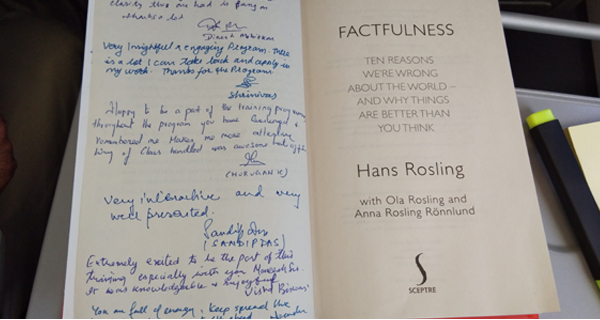 clarity
thanks a lot
Very Insightful & engaging Program. There
is a lot I can take back and apply in
my work. Thanks for the Program
Shrinivas
Happy to be a part of the training programme
throughout the program you have
remembered me Makes me more
way of class handled was awesome
(MURUGAN K)
Very interactive and very
well presented.
Sandip Das
(SANDIP DAS)
Extremely excited to be the part of this
training especially with you
It was knowledgeable &
You are full of energy, keep spread the
FACTFULNESS
TEN REASONS
WE'RE WRONG
ABOUT THE WORLD –
AND WHY THINGS
ARE BETTER THAN
YOU THINK
Hans Rosling
with Ola Rosling and
Anna Rosling Rönnlund
SCEPTRE